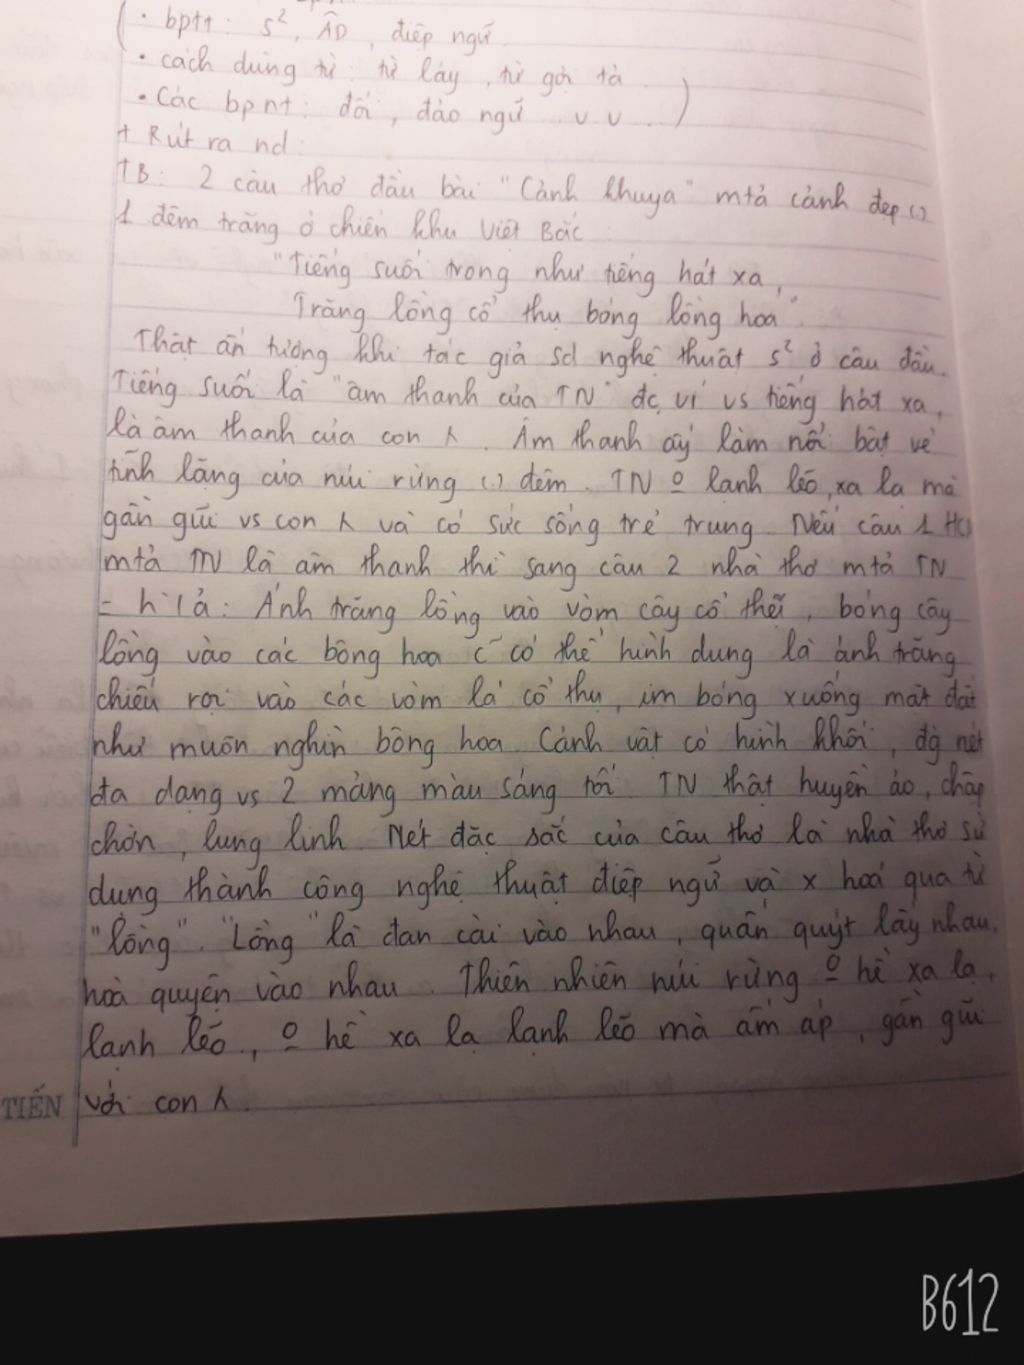 ( • bptt: s², ÂD, điệp ngữ.
• cách dùng từ: từ láy, từ gợi tả.
• Các bpnt: đối, đảo ngữ ... v v ... )
+ Rút ra nd
TB: 2 câu thơ đầu bài "Cảnh khuya" mtả cảnh đẹp (.)
1 đêm trăng ở chiến khu Việt Bắc:
"Tiếng suối trong như tiếng hát xa,
Trăng lồng cổ thụ bóng lồng hoa".
Thật ấn tượng khi tác giả sd nghệ thuật s² ở câu đầu.
Tiếng suối là "âm thanh của TN" đc ví vs tiếng hát xa,
là âm thanh của con λ. Âm thanh ấy làm nổi bật vẻ
tĩnh lặng của núi rừng (.) đêm. TN o lạnh lẽo, xa lạ mà
gần gũi vs con λ và có sức sống trẻ trung. Nếu câu 1 HCM
mtả TN là âm thanh thì sang câu 2 nhà thơ mtả TN
= h`/ả: Ánh trăng lồng vào vòm cây cổ thụ, bóng cây
lồng vào các bông hoa c~ có thể hình dung là ánh trăng
chiếu rọi vào các vòm lá cổ thụ, im bóng xuống mặt đất
như muôn nghìn bông hoa. Cảnh vật có hình khối, đg nét
đa dạng vs 2 mảng màu sáng tối. TN thật huyền ảo, chập
chờn, lung linh. Nét đặc sắc của câu thơ là nhà thơ sử
dụng thành công nghệ thuật điệp ngữ và x hoá qua từ
"lồng". "Lồng" là đan cài vào nhau, quấn quýt lấy nhau,
hoà quyện vào nhau. Thiên nhiên núi rừng o hề xa lạ,
lạnh lẽo, o hề xa lạ lạnh lẽo mà ấm áp, gần gũi
với con λ.
TIẾN
B612